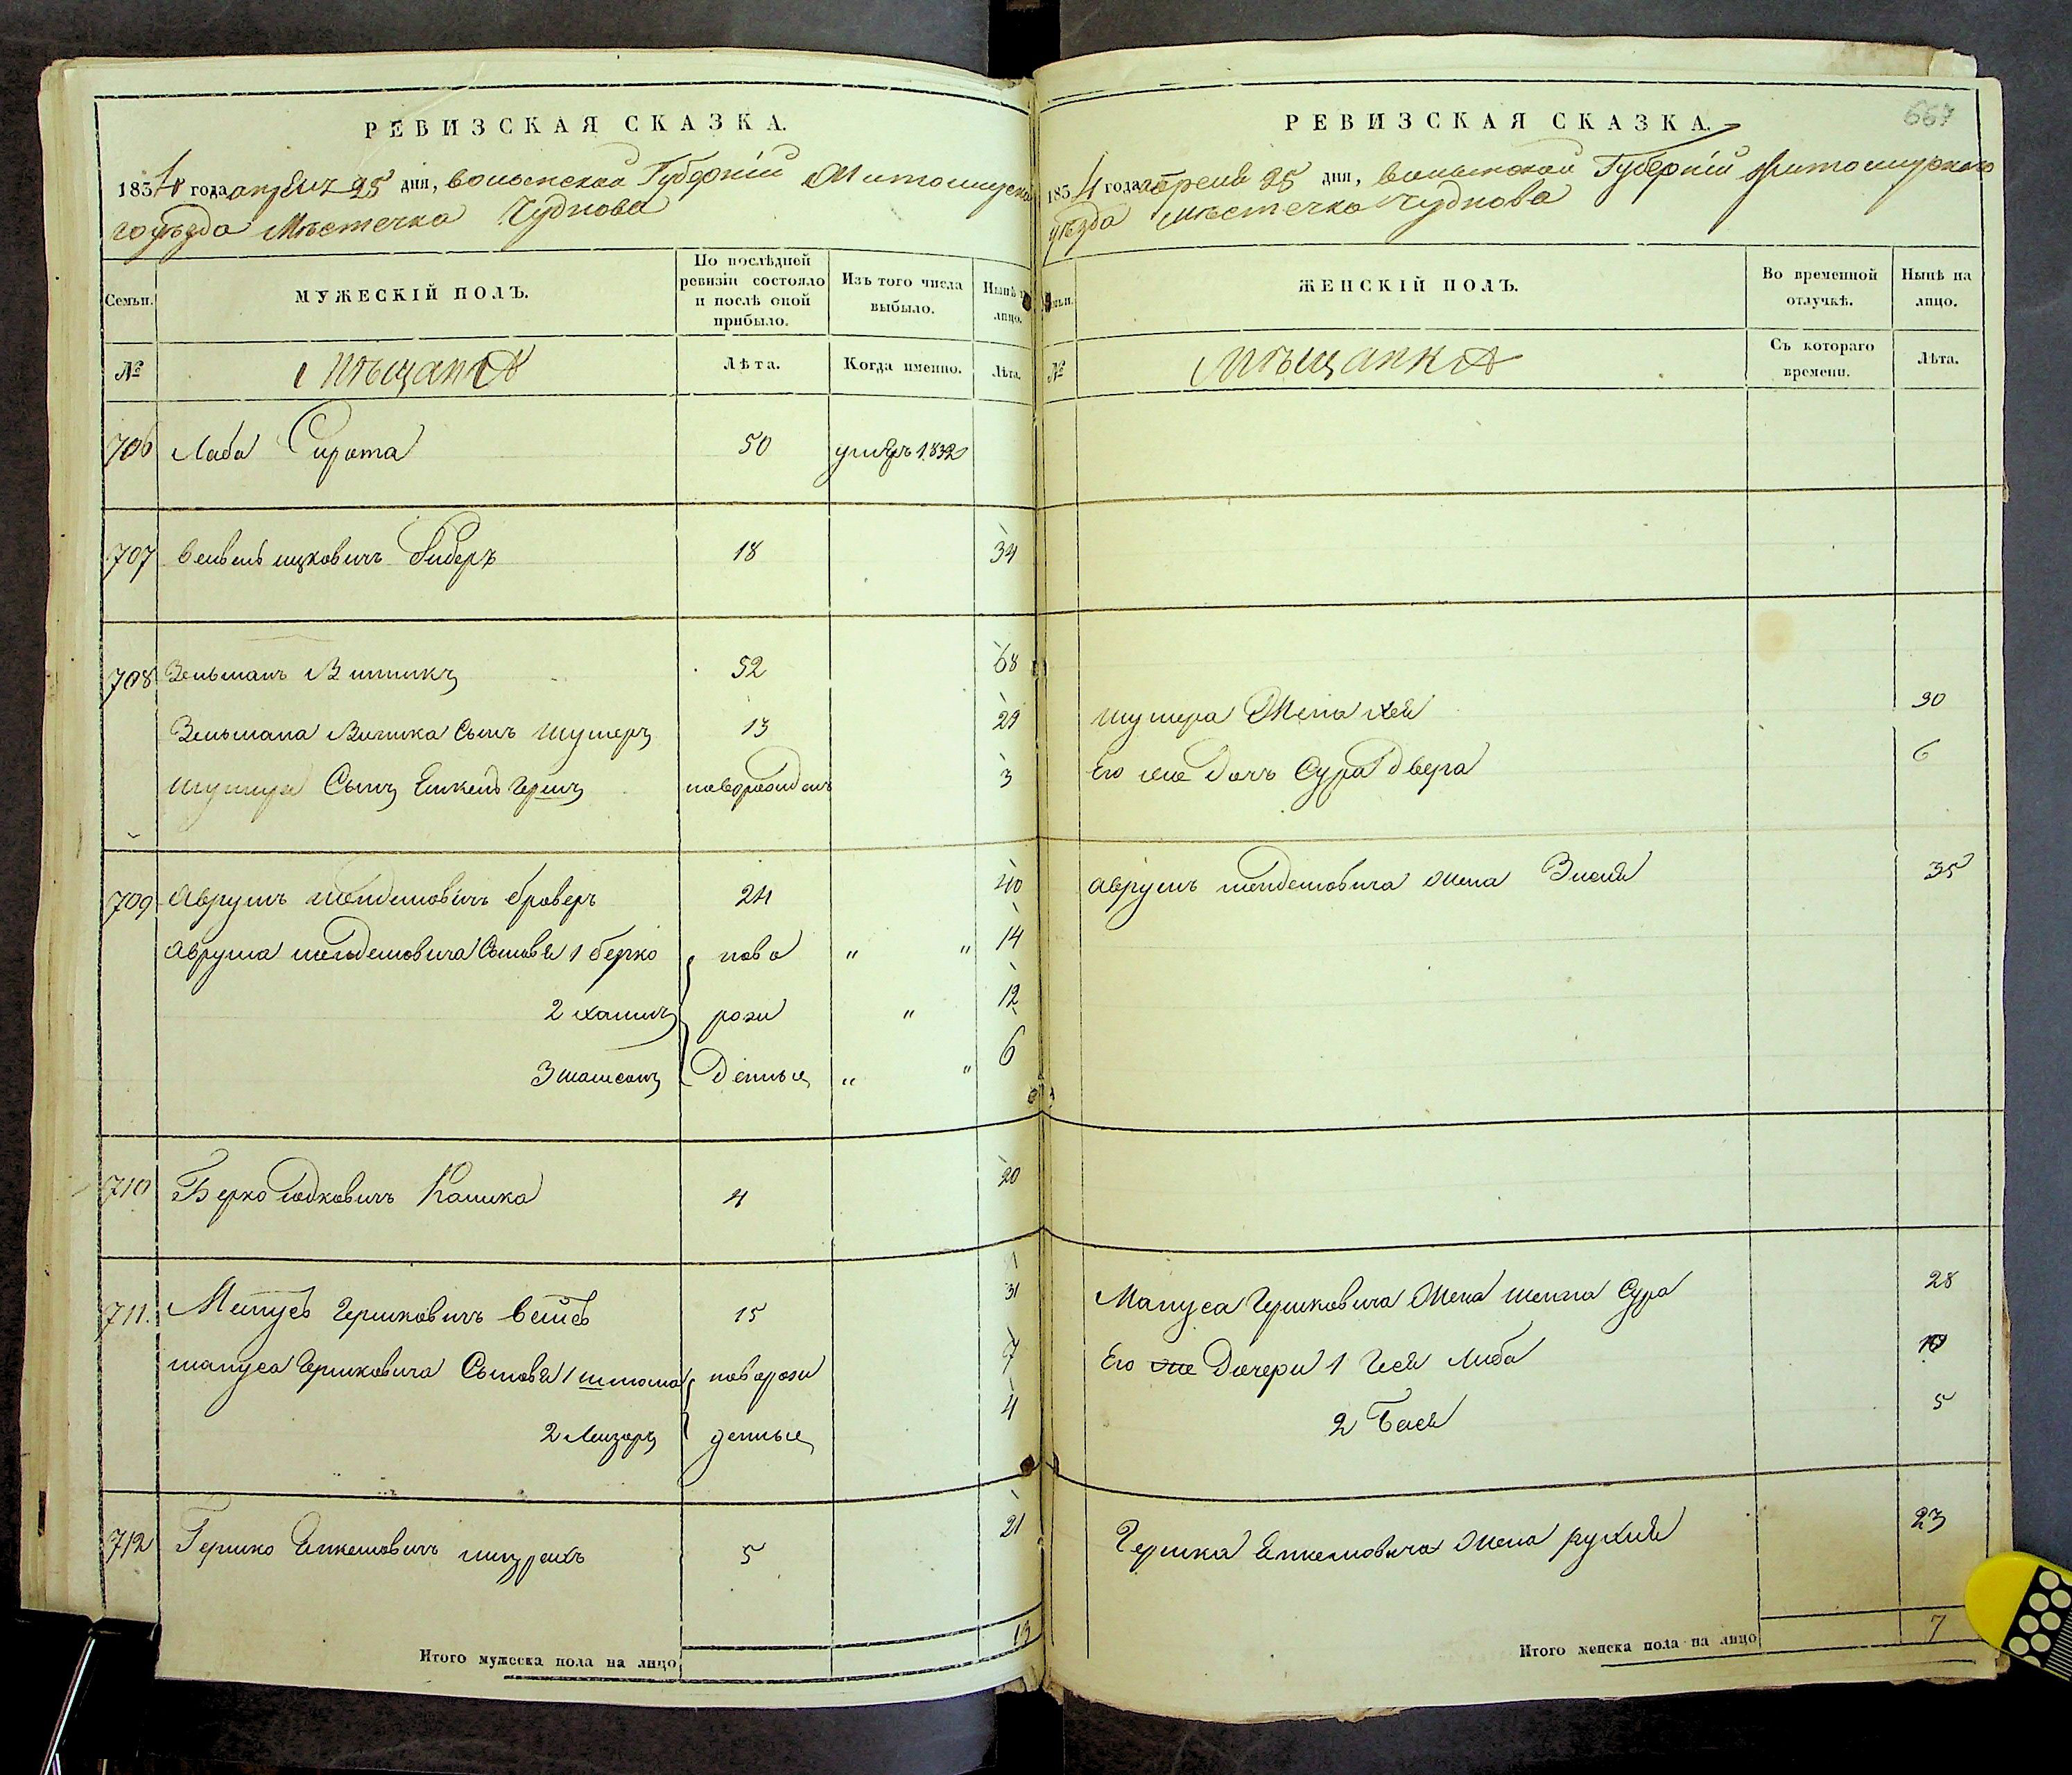 РЕВИЗСКАЯ СКАЗКА.
1834 года апреля 25 дня, волынской Губерніи Житомирска
го уѣзда Мѣстечка Чуднова
Семьи.
МУЖЕСКІЙ ПОЛЪ.
По послѣдней ревизіи состояло и послѣ оной прибыло.
Изъ того числа выбыло.
Нынѣ на лицо.
№
Мѣщане
Лѣта.
Когда именно.
Лѣта.
706 Лаба Сирота 50 умеръ 1832
707 Вельвель ицковичъ Либеръ 18 34
708 Зельманъ Винникъ 52 68
Зельмана Винника Сынъ Шумеръ 13 29
Шумера Сынъ Янкель Гершъ новорожденъ 3
709 Аврумъ Мендемовичъ броверъ 24 40
Аврума мендемовича Сыновья 1 берко ново " " 14
2 хаимъ рожи " 12
3 Мамсонъ Денные " " 6
710 Берко Юдковичъ Камика 4 20
711. Манусъ Гершковичъ Вейсъ 15 31
мануса Гершковича Сыновья 1 шлиома новорожи 7
2 Лейзоръ денные 4
712 Гершко Янкелювичъ 5 21
Итого мужеска пола на лицо 13
667
РЕВИЗСКАЯ СКАЗКА.
1834 года апреля 25 дня, волынской Губерніи Житомирскаго
уѣзда мѣстечка Чуднова
Семьи.
ЖЕНСКІЙ ПОЛЪ.
Во временной отлучкѣ.
Нынѣ на лицо.
№
Мѣщанки
Съ котораго времени.
Лѣта.
Шумера Жена хая 30
Его же дочь Сура двера 6
Аврумъ мендемовича жена Зися 35
Мануса Гершковича Жена шейна Сура 28
Его же Дочери 1 Гися Либа 10
2 Бася 5
Гершка Янкелювича жена рухля 23
Итого женска пола на лицо 7